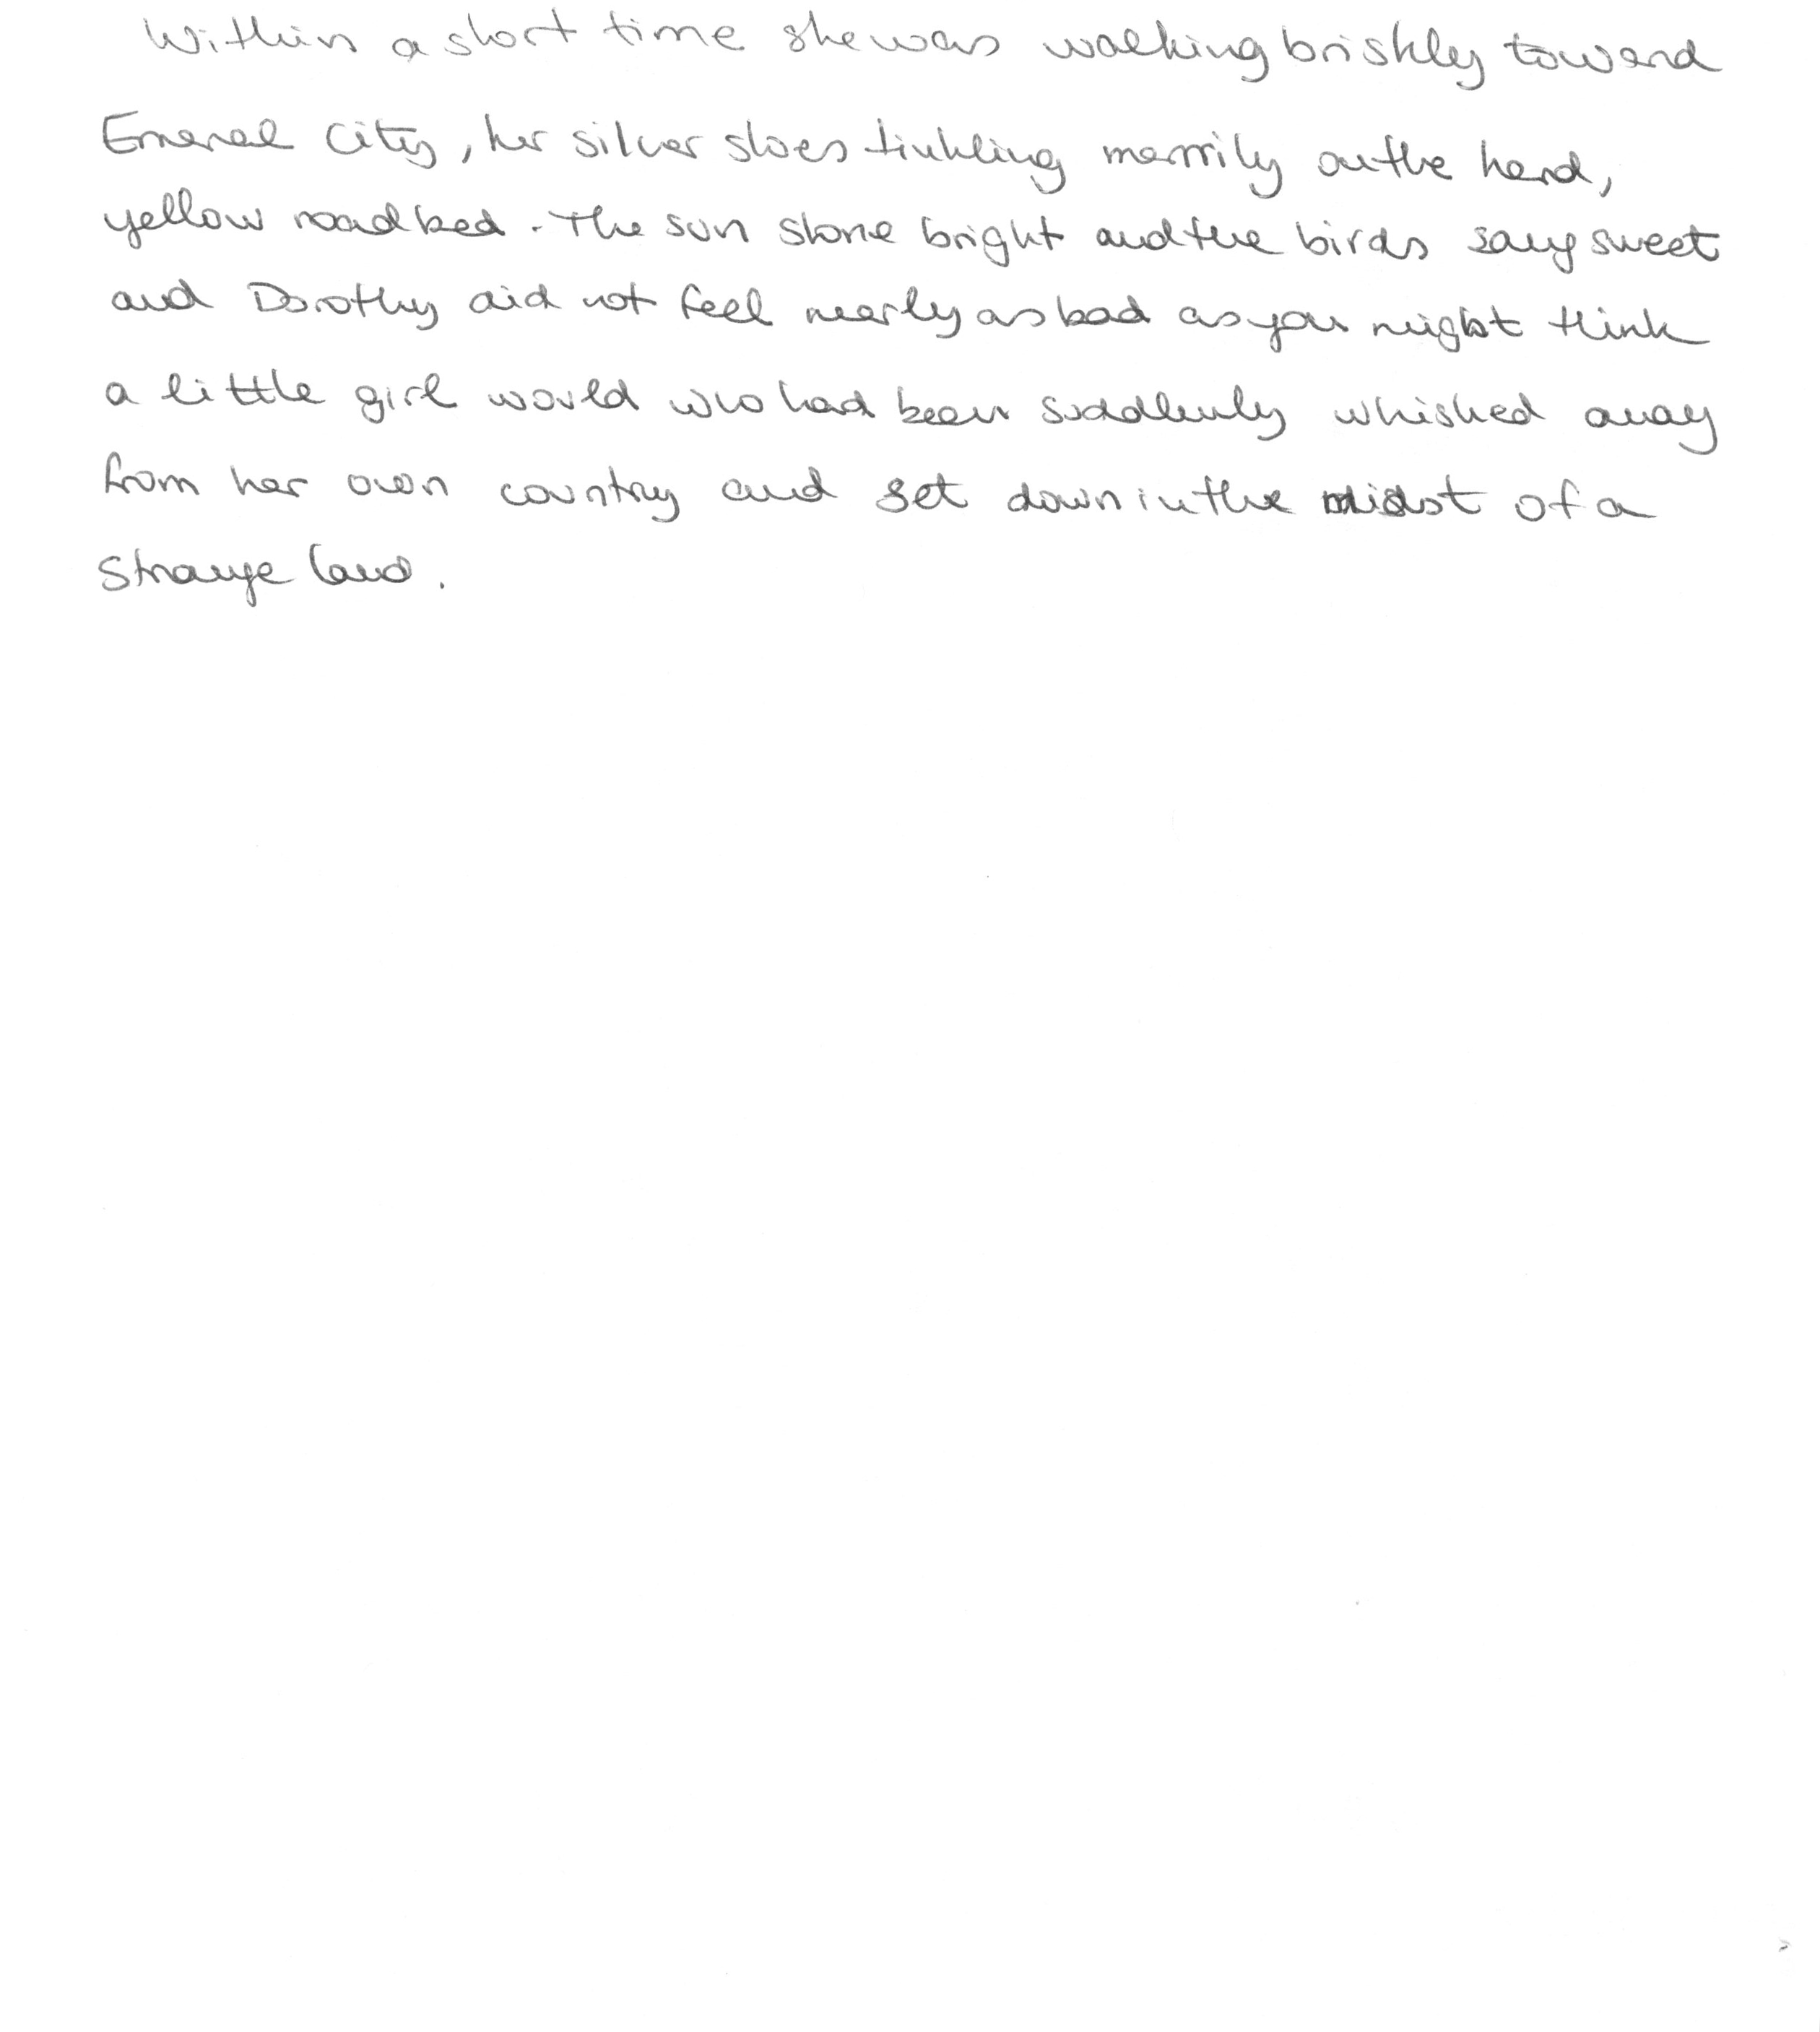 Within a short time she was walking briskly toward
Emeral City, her silver shoes tinkling merrily on the hard,
yellow roadbed. The sun shone bright and the birds sang sweet
and Dorothy did not feel nearly as bad as you might think
a little girl would who had been suddenly whisked away
from her own country and set down in the midst of a
strange land.